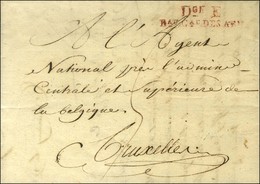 Don E
A l'Agent
National près l'admin
Centrale et Supérieure de
la belgique.
Bruxelles